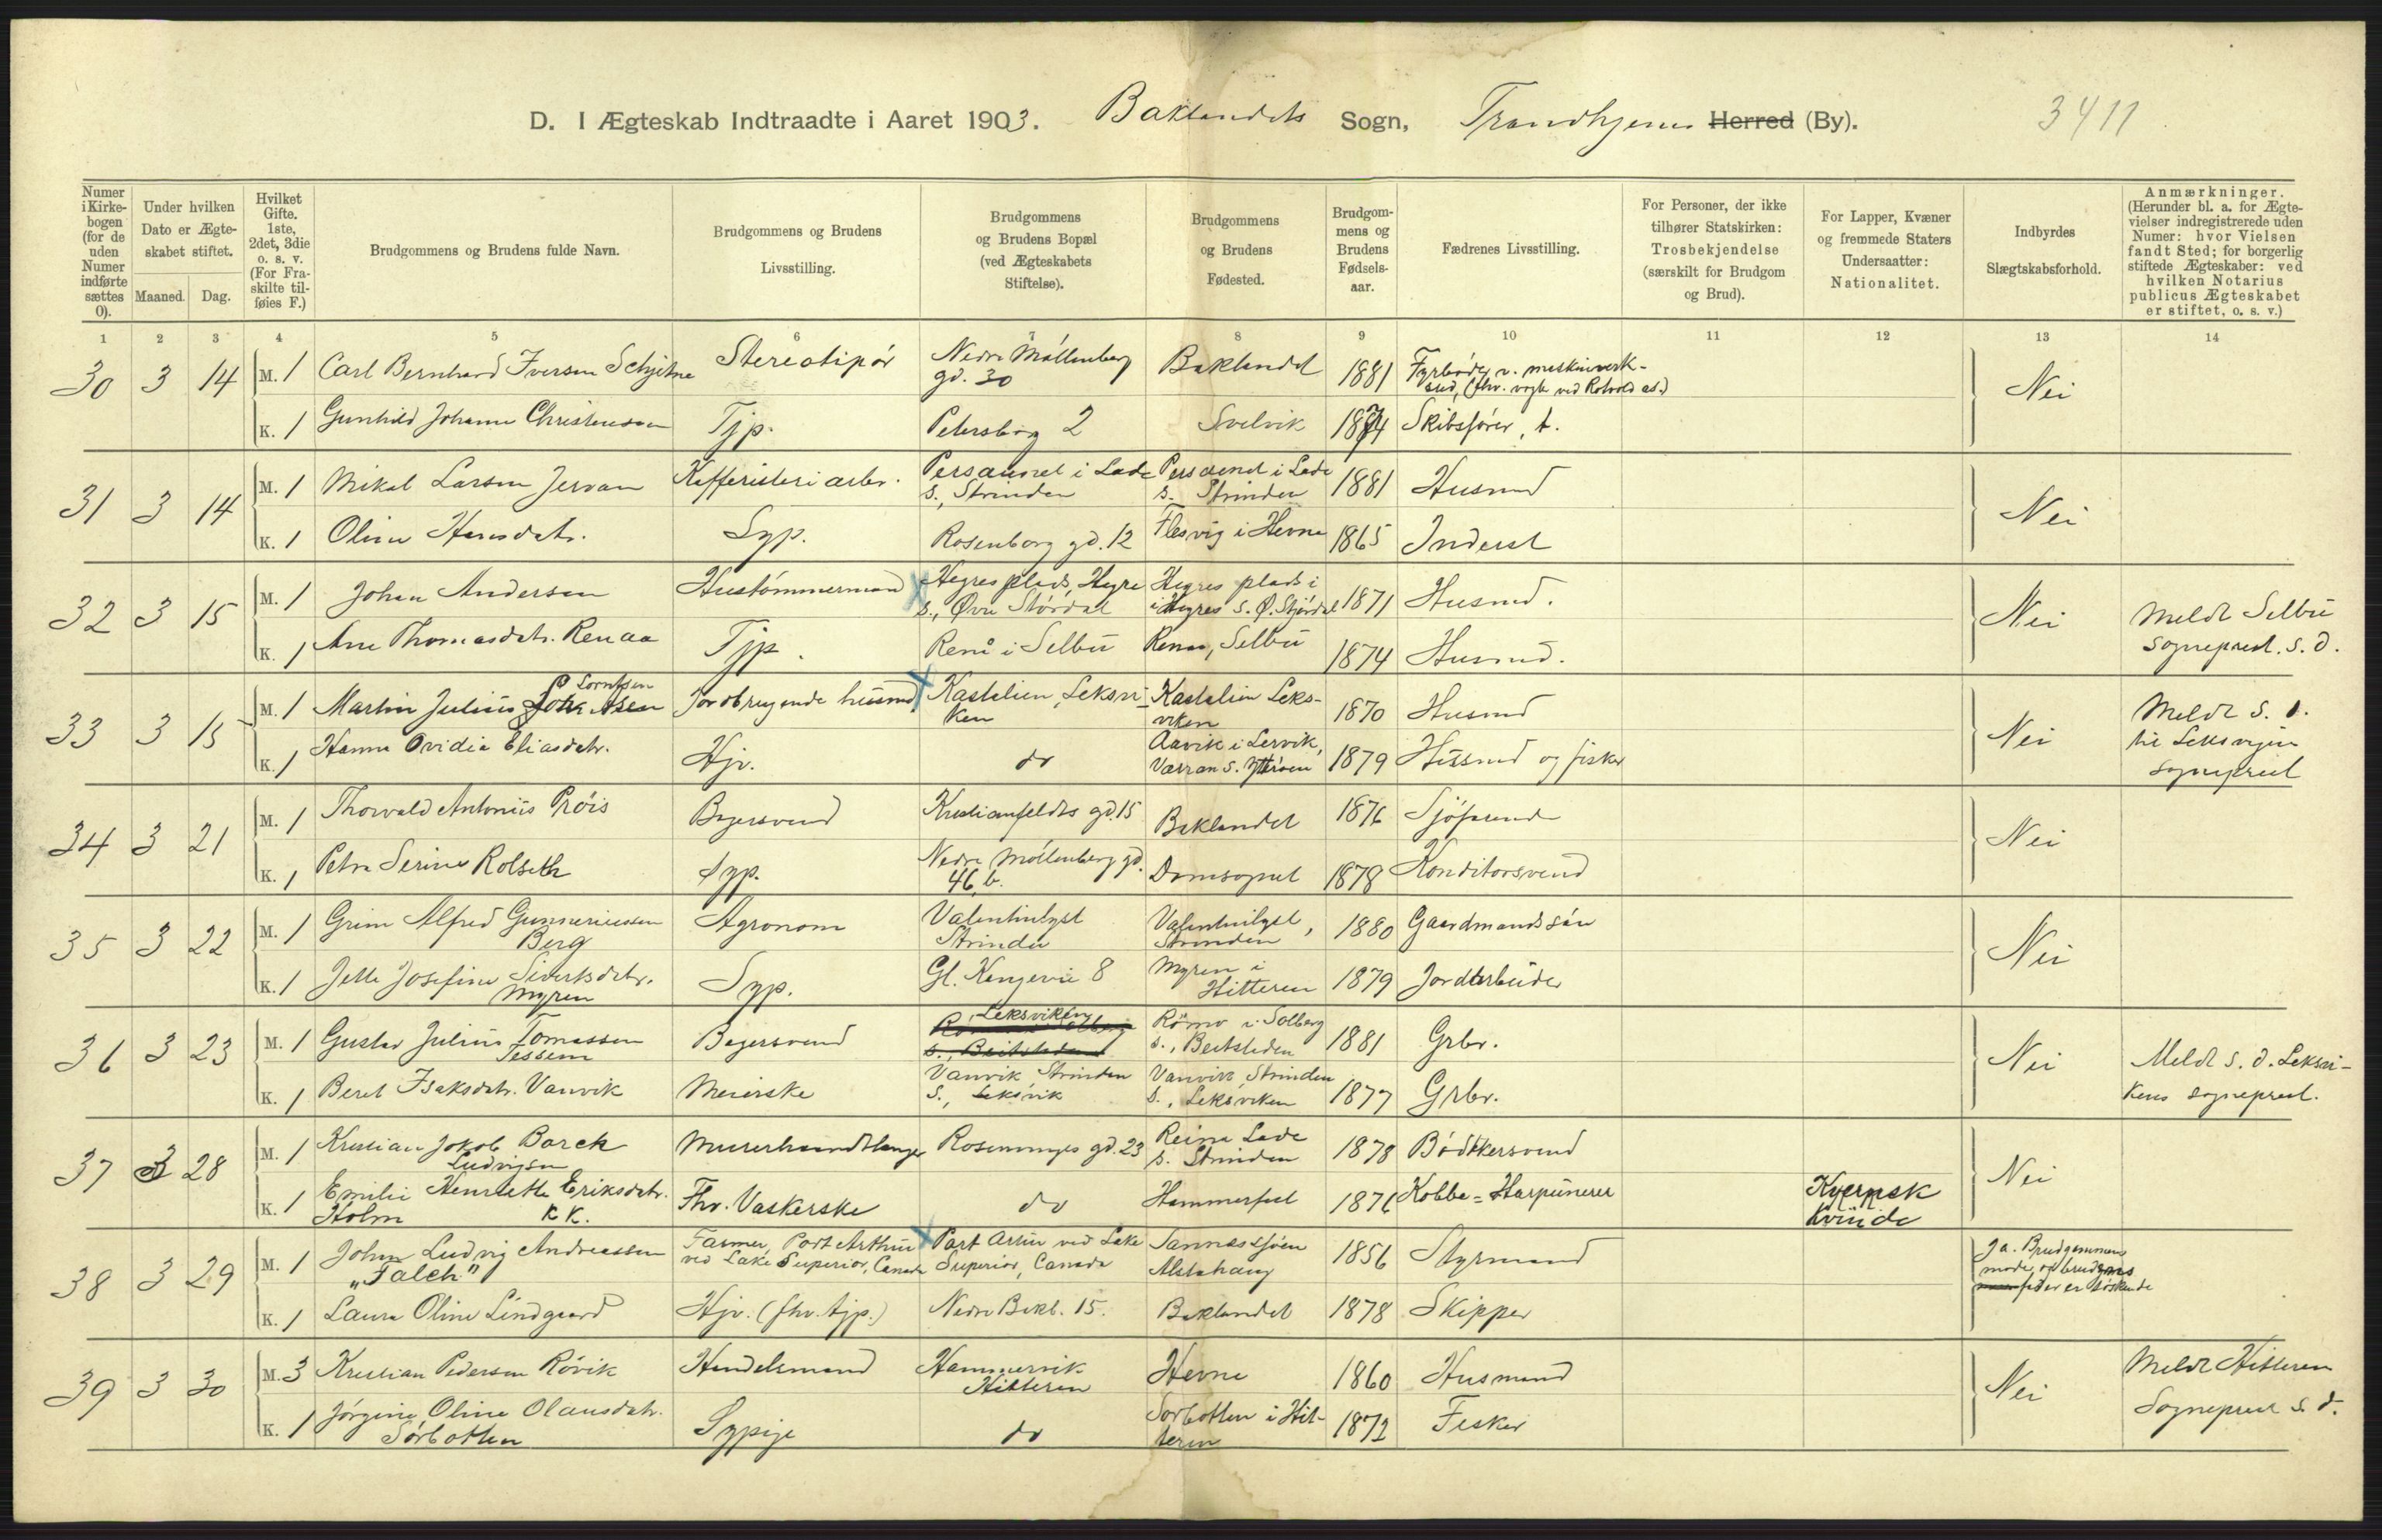 D. I Ægteskab Indtraadte i Aaret 1903. Baklandets Sogn, Trondhjems Herred (By). 3411
Numer i Kirkebogen (for de uden Numer indførte sættes 0).
Under hvilken Dato er Ægteskabet stiftet.
Maaned. Dag.
Hvilket Gifte. 1ste, 2det, 3die o. s. v. (For Fraskilte tilføies F.)
Brudgommens og Brudens fulde Navn.
Brudgommens og Brudens Livsstilling.
Brudgommens og Brudens Bopæl (ved Ægteskabets Stiftelse).
Brudgommens og Brudens Fødested.
Brudgommens og Brudens Fødselsaar.
Fædrenes Livsstilling.
For Personer, der ikke tilhører Statskirken: Trosbekjendelse (særskilt for Brudgom og Brud).
For Lapper, Kvæner og fremmede Staters Undersaatter: Nationalitet.
Indbyrdes Slægtskabsforhold.
Anmærkninger. (Herunder bl. a. for Ægtevielser indregistrerede uden Numer: hvor Vielsen fandt Sted; for borgerlig stiftede Ægteskaber: ved hvilken Notarius publicus Ægteskabet er stiftet, o. s. v.)
1 2 3 4 5 6 7 8 9 10 11 12 13 14
30 3 14 M. 1 Carl Bernhard Iversen Schjetne Stereotipør Nedre Møllenberg gd. 30 Baklandet 1881 Fyrbøder v. meskinverksted, (fhv. vogtr ved Rotvold as.) Nei
K. 1 Gunhild Johanne Christensen Tjp. Petersborg 2 Svelvik 1874 Skibsfører, t.
31 3 14 M. 1 Mikal Larsen Jervan Kafferisteri arbr. Persaunet i Lade s., Strinden Persaunet i Lade s. Strinden 1881 Husmd Nei
K. 1 Oline Hansdatr. Syp. Rosenborg gd. 12 Flesvig i Hevne 1865 Inderst
32 3 15 M. 1 Johan Andersen Hustømmermand Hegres plads, Hegre s., Øvre Stördal Hegres plads i Hegres s. Ø. Stjørdal 1871 Husmd. Nei Meldt Selbu sogneprest. s. d.
K. 1 Ane Thomasdatr. Renaa Tjp. Renå i Selbu Renaa, Selbu 1874 Husmd.
33 3 15 M. 1 Martin Julius Lorntsen Jordbrugende husmd Kastalien, Leksviken Kastalien Leksviken 1870 Husmd Nei Meldt s. d. til Leksvigens sogneprest
K. 1 Hanna Ovidia Eliasdatr. Hjv. do Aavik i Lervik,Værran s. Ytterøen 1879 Hussmd og fisker
34 3 21 M. 1 Thorvald Antonius Prøis Bagersvend Kristianfeldts gd. 15 Baklandet 1876 Sjøfarende Nei
K. 1 Petra Serine Rolseth Syp. Nedre Møllenberg gd. 46, b. Domsognet 1878 Konditorsvend
35 3 22 M. 1 Grim Alfred Gunneriussen Berg Agronom Valentinlyst Strinda Valentinlyst, Strinden 1880 Gaardmandssøn Nei
K. 1 Jette Josefine Sivertsdatr. Myren Syp. Gl. Kongevei 8 Myren i Hitteren 1879 Jordarbeider
36 3 23 M. 1 Gustav Julius Tomassen Tessem Bagersvend Leksviken Rømo i Solberg s., Beitstaden 1881 Grbr. Nei Meldt s. d. Leksvikens sogneprest.
K. 1 Beret Isaksdatr. Vanvik Meierske Vanvik, Strinden s., Leksvik Vanvik, Strinden s., Leksviken 1877 Grbr.
37 3 28 M. 1 Kristian Jokob Barck Ludvigsen Murerhaandtlanger Rosenborgs gd. 23 Reina Lade s. Strinden 1878 Bødtkersvend Nei
K. 1 Emilie Henriette Eriksdatr. Holm KK. Fhv. Vaskerske do Hammerfest 1876 Kobbe=Harpunerer Kvænsk Kvinde
38 3 29 M. 1 Johan Ludvig Andreassen "Falch" Farmer, Port Arthur ved Lake Superior, Canada Port Artur ved Lake Superior, Canada Sannessjøen Alstahaug 1856 Styrmand Ja. Brudgommens moder og brudens fader er søskende
K. 1 Laura Oline Lindgaard Hjv. (fhv. tjp.) Nedre Bakl. 15. Baklandet 1878 Skipper
39 3 30 M. 3 Kristian Pedersen Røvik Handelsmand Hammervik Hitteren Hevne 1860 Husmand Nei Meldt Hitteren Sogneprest s. d.
K. 1 Jørgine Oline Olausdatr. Sørbotten Sypige do Sørbotten i Hitteren 1872 Fisker